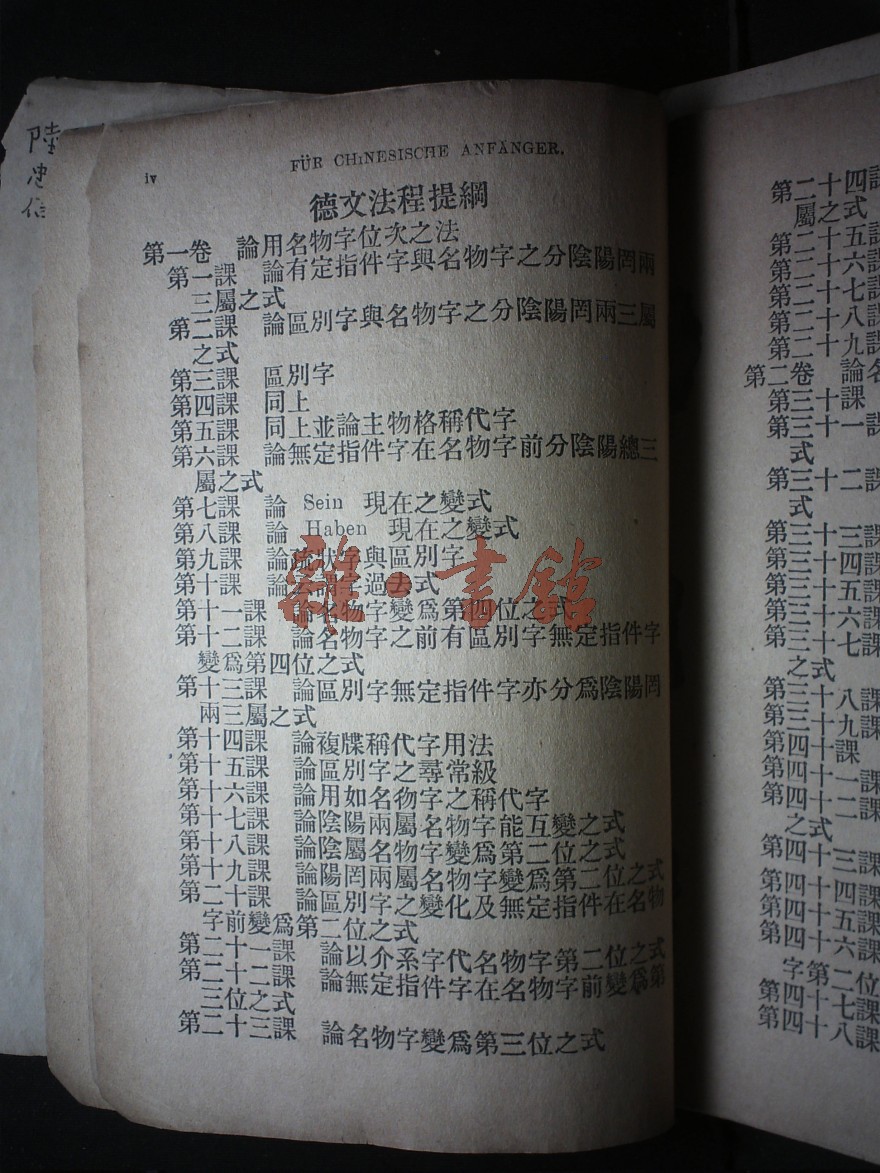 陸
忠
信
iv
FÜR CHINESISCHE ANFÄNGER.
德文法程提綱
第一卷 論用名物字位次之法
第一課 論有定指件字與名物字之分陰陽罔兩
三屬之式
第二課 論區別字與名物字之分陰陽罔兩三屬
之式
第三課 區別字
第四課 同上
第五課 同上並論主物格稱代字
第六課 論無定指件字在名物字前分陰陽總三
屬之式
第七課 論 Sein 現在之變式
第八課 論 Haben 現在之變式
第九課 論疏狀字與區別字
第十課 論 過去式
第十一課 論名物字變爲第四位之式
第十二課 論名物字之前有區別字無定指件字
變爲第四位之式
第十三課 論區別字無定指件字亦分爲陰陽罔
兩三屬之式
第十四課 論複牒稱代字用法
第十五課 論區別字之尋常級
第十六課 論用如名物字之稱代字
第十七課 論陰陽兩屬名物字能互變之式
第十八課 論陰屬名物字變爲第二位之式
第十九課 論陽罔兩屬名物字變爲第二位之式
第二十課 論區別字之變化及無定指件在名物
字前變爲第二位之式
第二十一課 論以介系字代名物字第二位之式
第二十二課 論無定指件字在名物字前變爲第
三位之式
第二十三課 論名物字變爲第三位之式
雜·書館
第二十四課
屬之式
第二十五課
第二十六課
第二十七課
第二十八課
第二十九課
第二卷 論名
第三十課
第三十一課
式
第三十二課
式
第三十三課
第三十四課
第三十五課
第三十六課
第三十七課
之式
第三十八課
第三十九課
第四十課
第四十一課
第四十二課
之式
第四十三課
第四十四課
第四十五課
第四十六課
字第二位
第四十七課
第四十八課